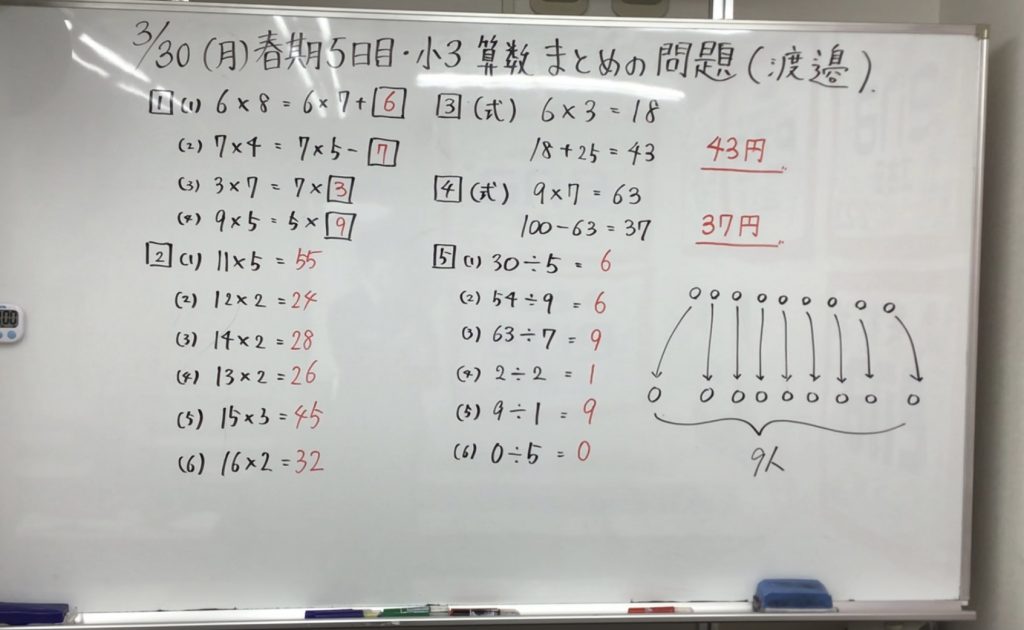 3/30(月)春期5日目・小3 算数 まとめの問題(渡邊).
1 (1) 6×8=6×7+6
(2) 7×4=7×5-7
(3) 3×7=7×3
(4) 9×5=5×9
2 (1) 11×5=55
(2) 12×2=24
(3) 14×2=28
(4) 13×2=26
(5) 15×3=45
(6) 16×2=32
3 (式) 6×3=18
18+25=43 43円
4 (式) 9×7=63
100-63=37 37円
5 (1) 30÷5=6
(2) 54÷9=6
(3) 63÷7=9
(4) 2÷2=1
(5) 9÷1=9
(6) 0÷5=0
9人